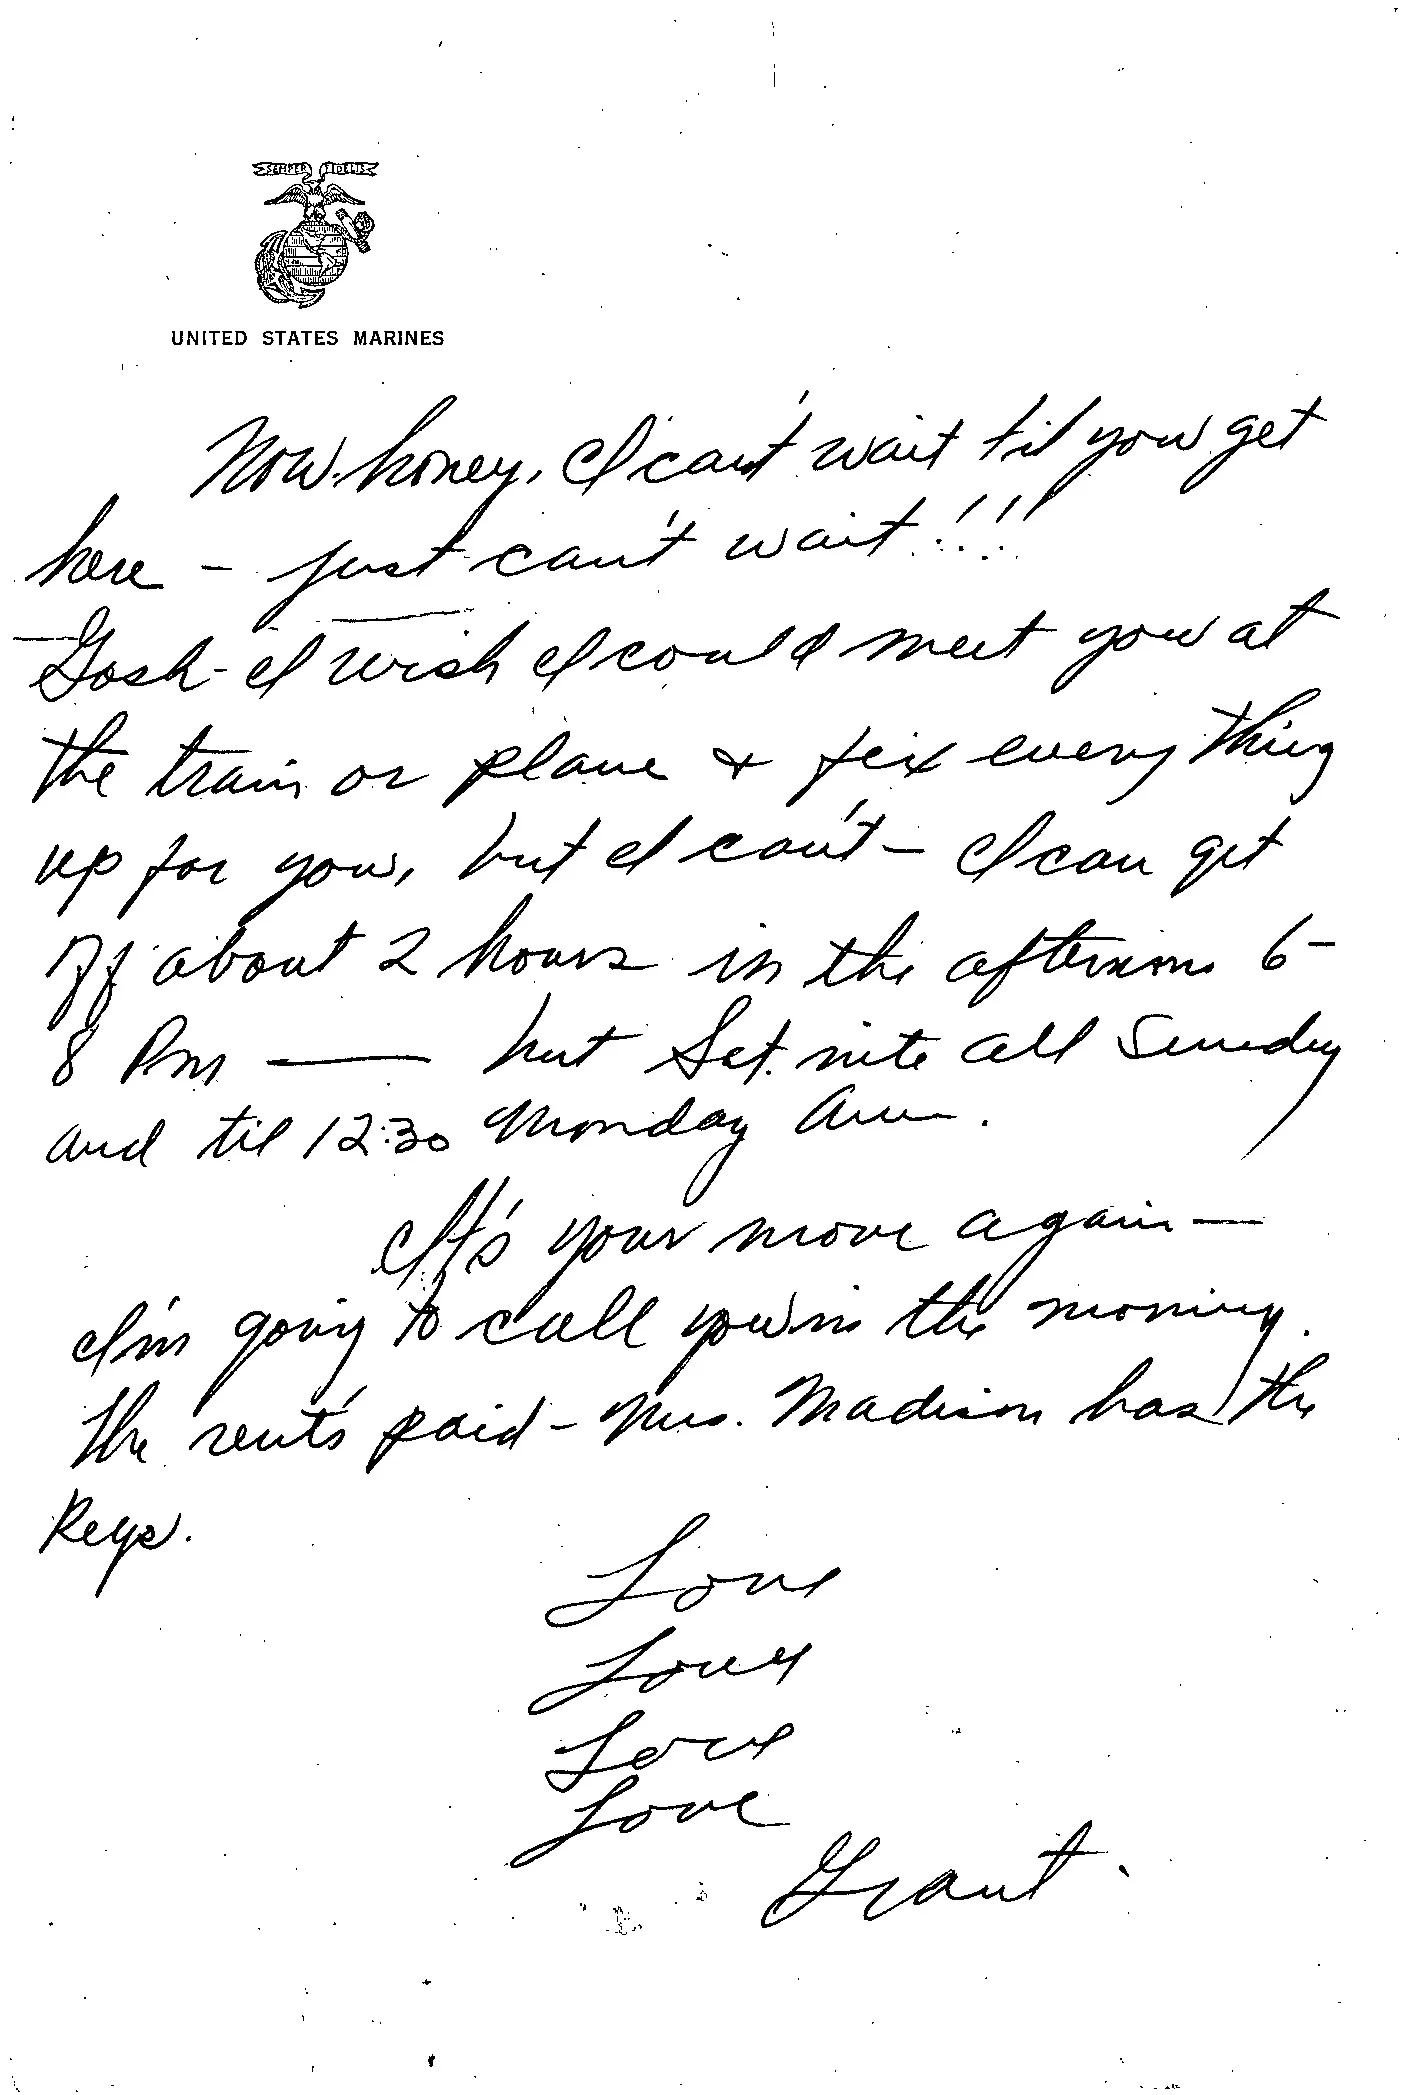 SEMPER FIDELIS
UNITED STATES MARINES
Now honey, I can't wait til you get
here - just can't wait!!!
Gosh - I wish I could meet you at
the train or plane & fix everything
up for you, but I can't - I can get
off about 2 hours in the afternoons 6-
8 Pm — but Sat. nite all Sunday
and til 12:30 Monday Am.
It's your move again —
I'm going to call you in the morning.
The rent's paid - Mrs. Madison has the
Keys.
Love
Love
Love
Love
Grant